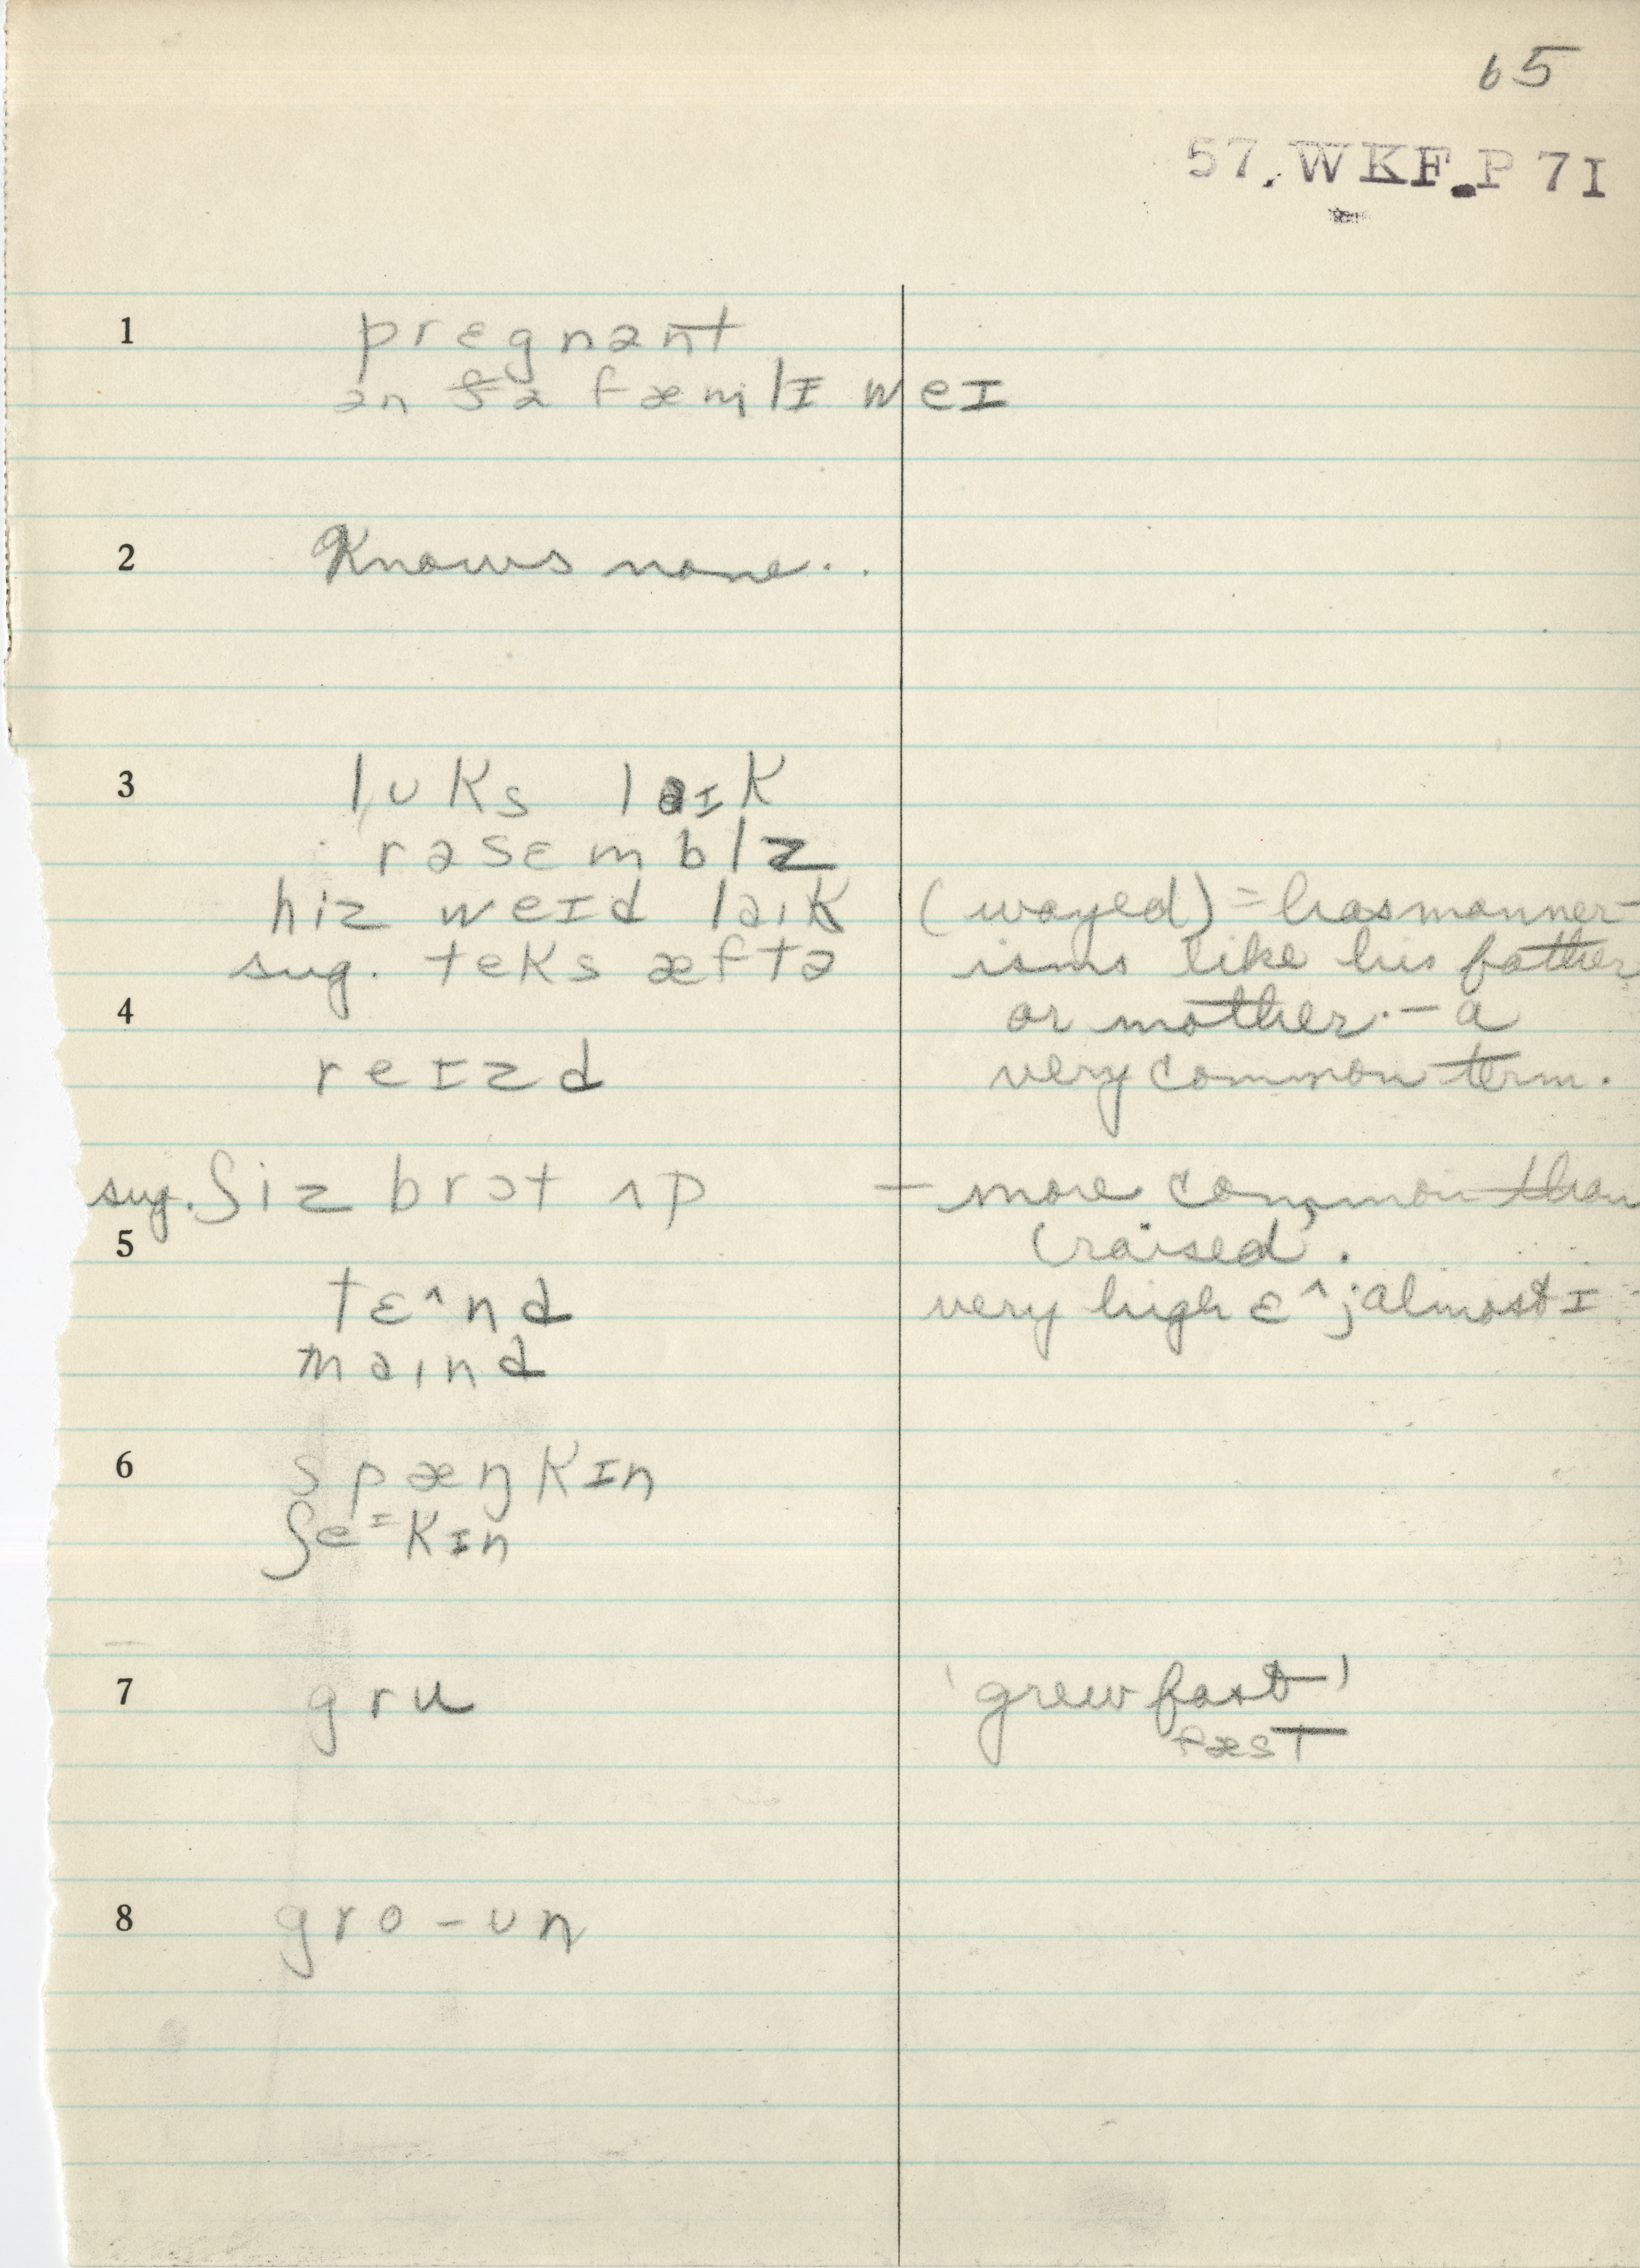 65
57. WKF. P 7I
1 prɛgnənt
ən ðə fæmlɪ weɪ
2 Knows none..
3 lʊks laɪk
rəsɛmblz
hiz weɪd laɪk (wayed) = has manner-
sug. teks æftə isms like his father
4 or mother. – a
reɪzd very common term.
sug. ʃiz brɔt ʌp – more common than
5 'raised'.
tɛ^nd very high ɛ^; almost ɪ
maɪnd
6 spæŋkɪn
ʃeɪkɪn
7 gru 'grew fast'
fæst
8 gro-ʊn